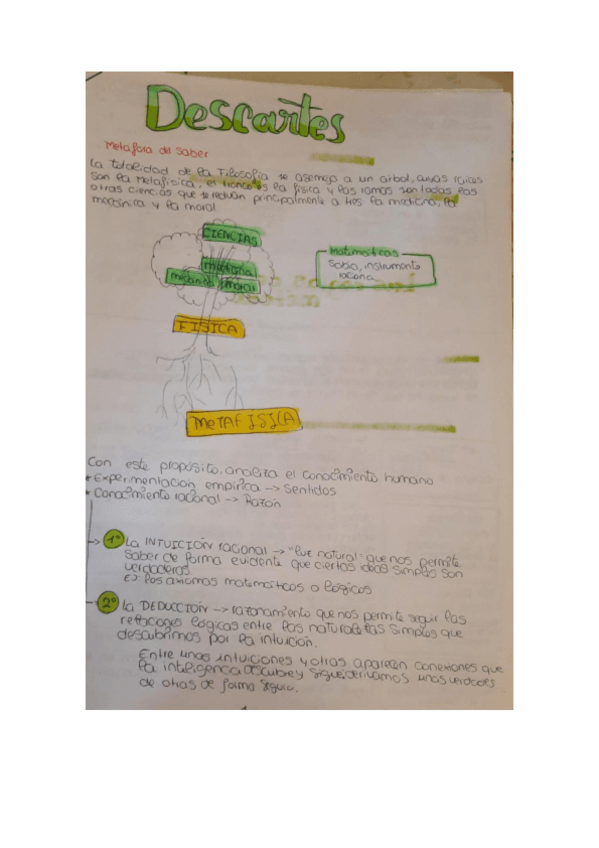 Descartes
Metáfora del saber
La totalidad de la Filosofía se asemeja a un árbol, cuyas raíces
son la Metafísica, el tronco es la física y las ramas son todas las
otras ciencias que se reducen principalmente a tres la medicina, la
mecánica y la moral
CIENCIAS
medicina
mecánica moral
Matemáticas
Sabia, instrumento
FÍSICA
METAFÍSICA
Con este propósito, analiza el conocimiento humano
* Experimentación empírica -> Sentidos
* Conocimiento racional -> Razón
1º La INTUICIÓN racional -> "luz natural" que nos permite
saber de forma evidente que ciertas ideas simples son
verdaderas.
Ej: los axiomas matemáticos o lógicos
2º La DEDUCCIÓN -> razonamiento que nos permite seguir las
relaciones lógicas entre las naturalezas simples que
descubrimos por la intuición.
Entre unas intuiciones y otras aparecen conexiones que
la inteligencia descubre y sigue, derivamos unas verdades
de otras de forma segura.